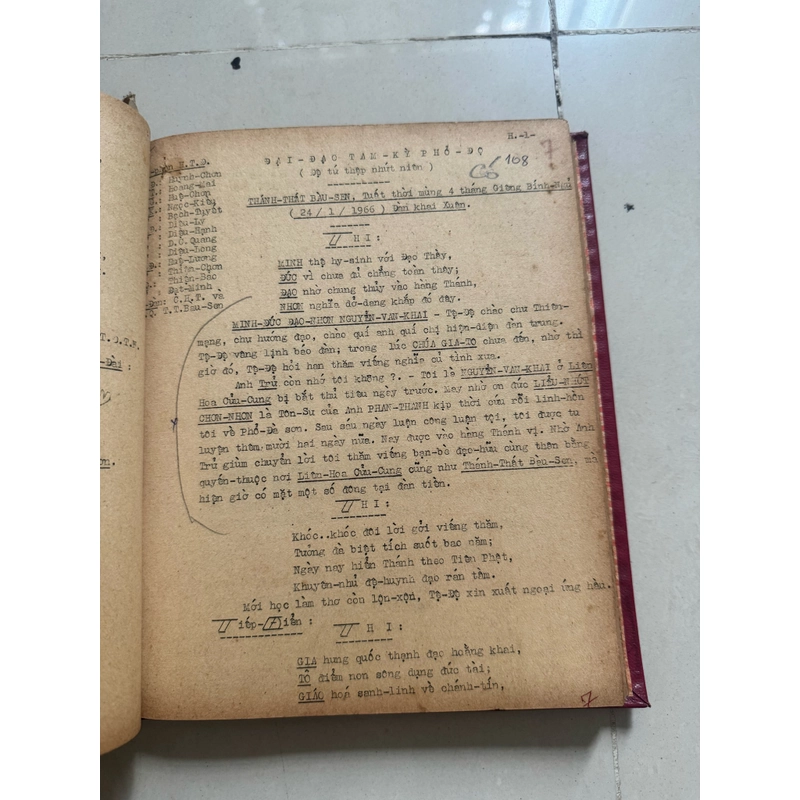 H.-1-
7
Có 108
ĐẠI-ĐẠO TAM-KỲ PHỔ-ĐỘ
( Đệ tứ thập nhứt niên )
THÁNH-THẤT BÀU-SEN, Tuất thời mùng 4 tháng Giêng Bính-Ngũ
( 24/1/1966 ) Đàn khai Xuân.
THI:
MINH thệ hy-sinh với Đạo Thầy,
ĐỨC vì chưa đủ chẳng toàn thây;
ĐẠO nhờ chung thủy vào hàng Thánh,
NHƠN nghĩa dở-dang khắp đó đây.
MINH-ĐỨC ĐẠO-NHƠN NGUYỄN-VAN-KHAI - Tệ-Đệ chào chư Thiên-
mạng, chư hướng đạo, chào quí anh quí chị hiện-diện đàn trung.
Tệ-Đệ vâng lịnh báo đàn; trong lúc CHÚA GIA-TÔ chưa đến, nhờ thì
giờ đó, Tệ-Đệ hỏi han thăm viếng nghĩa cũ tình xưa.
Anh Trử còn nhớ tôi không ?. - Tôi là NGUYỄN-VAN-KHAI ở Liên
Hoa Cửu-Cung bị bất thủ tiêu ngày trước. May nhờ ơn đức LIỄU-NHỨT
CHƠN-NHƠN là Tôn-Sư của Anh PHAN-THANH kịp thời cứu rỗi linh-hồn
tôi về Phổ-Đà sơn. Sau sáu ngày luận công luận tội, tôi được tu
luyện thêm mười hai ngày nữa. Nay được vào hàng Thánh vị. Nhờ Anh
Trử giùm chuyển lời tôi thăm viếng bạn-bè đạo-hữu cùng thân bằng
quyến-thuộc nơi Liên-Hoa Cửu-Cung cũng như Thánh-Thất Bàu-Sen, mà
hiện giờ có mặt một số đông tại đàn tiền.
THI:
Khóc..khóc đôi lời gởi viếng thăm,
Tưởng đà biệt tích suốt bao năm;
Ngày nay hiển Thánh theo Tiên Phật,
Khuyên-nhủ đệ-huynh đạo rán tầm.
Mới học làm thơ còn lộn-xộn, Tệ-Đệ xin xuất ngoại ứng hầu.
Tiếp-Điển: THI:
GIA hưng quốc thạnh đạo hoằng khai,
TÔ điểm non sông dụng đức tài;
GIÁO hoá sanh-linh vô chánh-tín,
7
H.T.Đ.
Huỳnh-Chơn
Hoàng-Mai
Huệ-Chơn
Ngọc-Kiều
Bạch-Tuyết
Diệu-Lý
Diệu-Hạnh
D.Q. Quang
Diệu-Long
Huệ-Lương
Thiện-Chơn
Thiện-Bảo
Đạt-Minh
C.H.P. và
T.T.Bàu-Sen